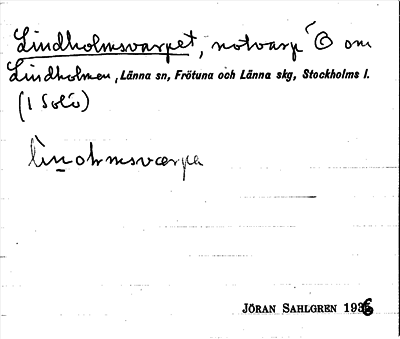 Lindholmsvarpet, notvarp Ⓞ om
Lindholmen, Länna sn, Frötuna och Länna skg, Stockholms l.
(1 Solö)
linolmsvarpa
JÖRAN SAHLGREN 1936